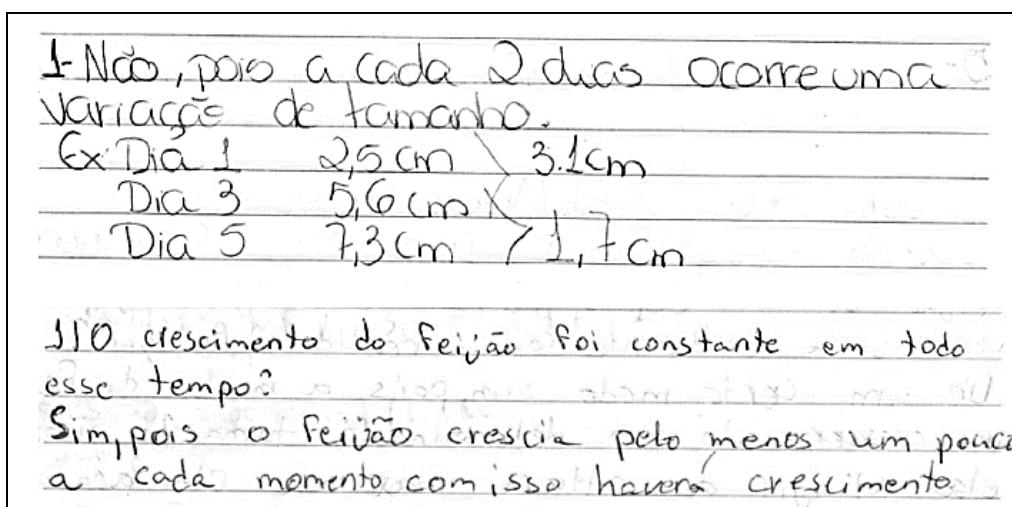 1- Não, pois a cada 2 dias ocorre uma
variação de tamanho.
Ex Dia 1 2,5 cm 3.1cm
Dia 3 5,6 cm
Dia 5 7,3 cm 1,7 cm
1) O crescimento do feijão foi constante em todo
esse tempo?
Sim, pois o feijão crescia pelo menos um pouco
a cada momento com isso haverá crescimento